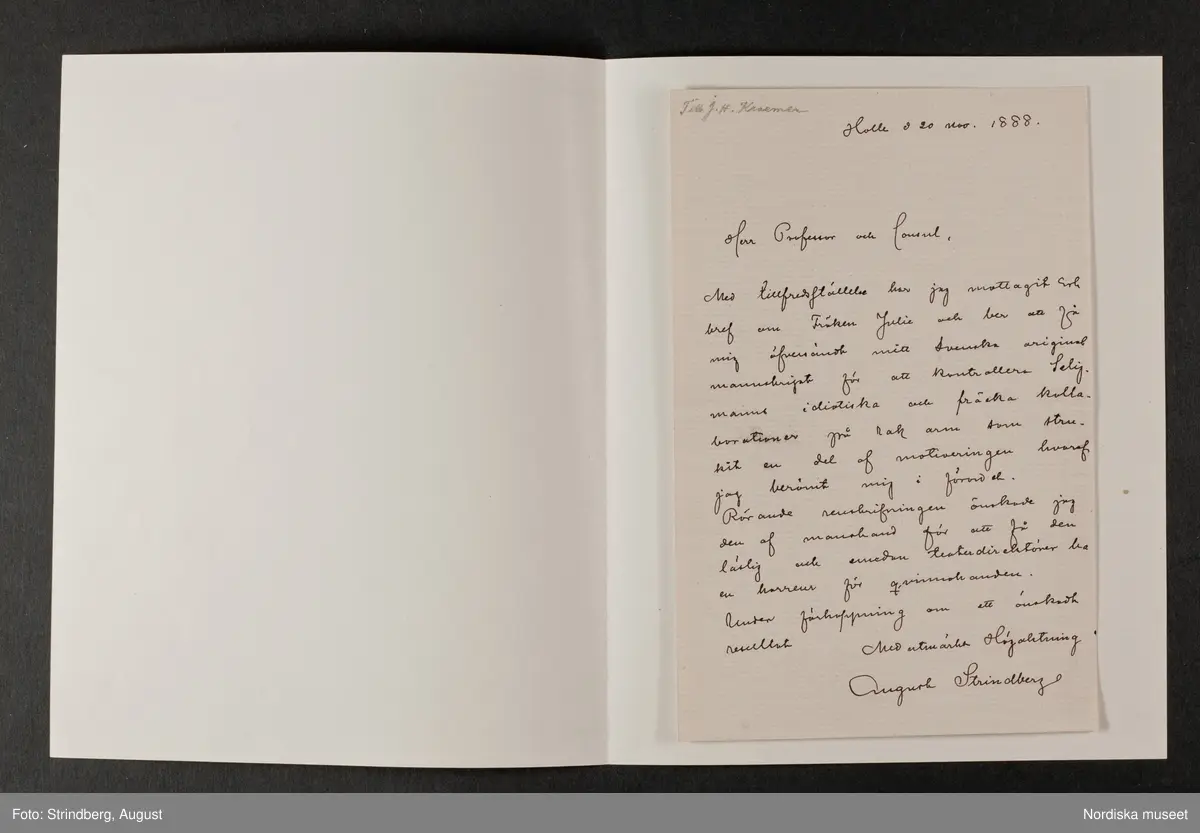 Till J. H. Kramer
Holte d 20 Nov. 1888.
Herr Professor och Consul,
Med tillfredsställelse har jag mottagit Edt
bref om Fröken Julie och ber att få
mig öfversändt mitt Svenska original
manuskript för att kontrollera Selig-
manns idiotiska och fräcka kolla-
borationer på rak arm som stru-
kit en del af motiveringen hvaraf
jag berömt mig i förordet.
Rörande renskrifningen önskade jag
den af manshand för att få den
läslig och emedan teaterdirektörer ha
en horreur för qvinnohanden.
Under förhoppning om ett önskadt
resultat Med utmärkt Högaktning
August Strindberg
Foto: Strindberg, August
Nordiska museet